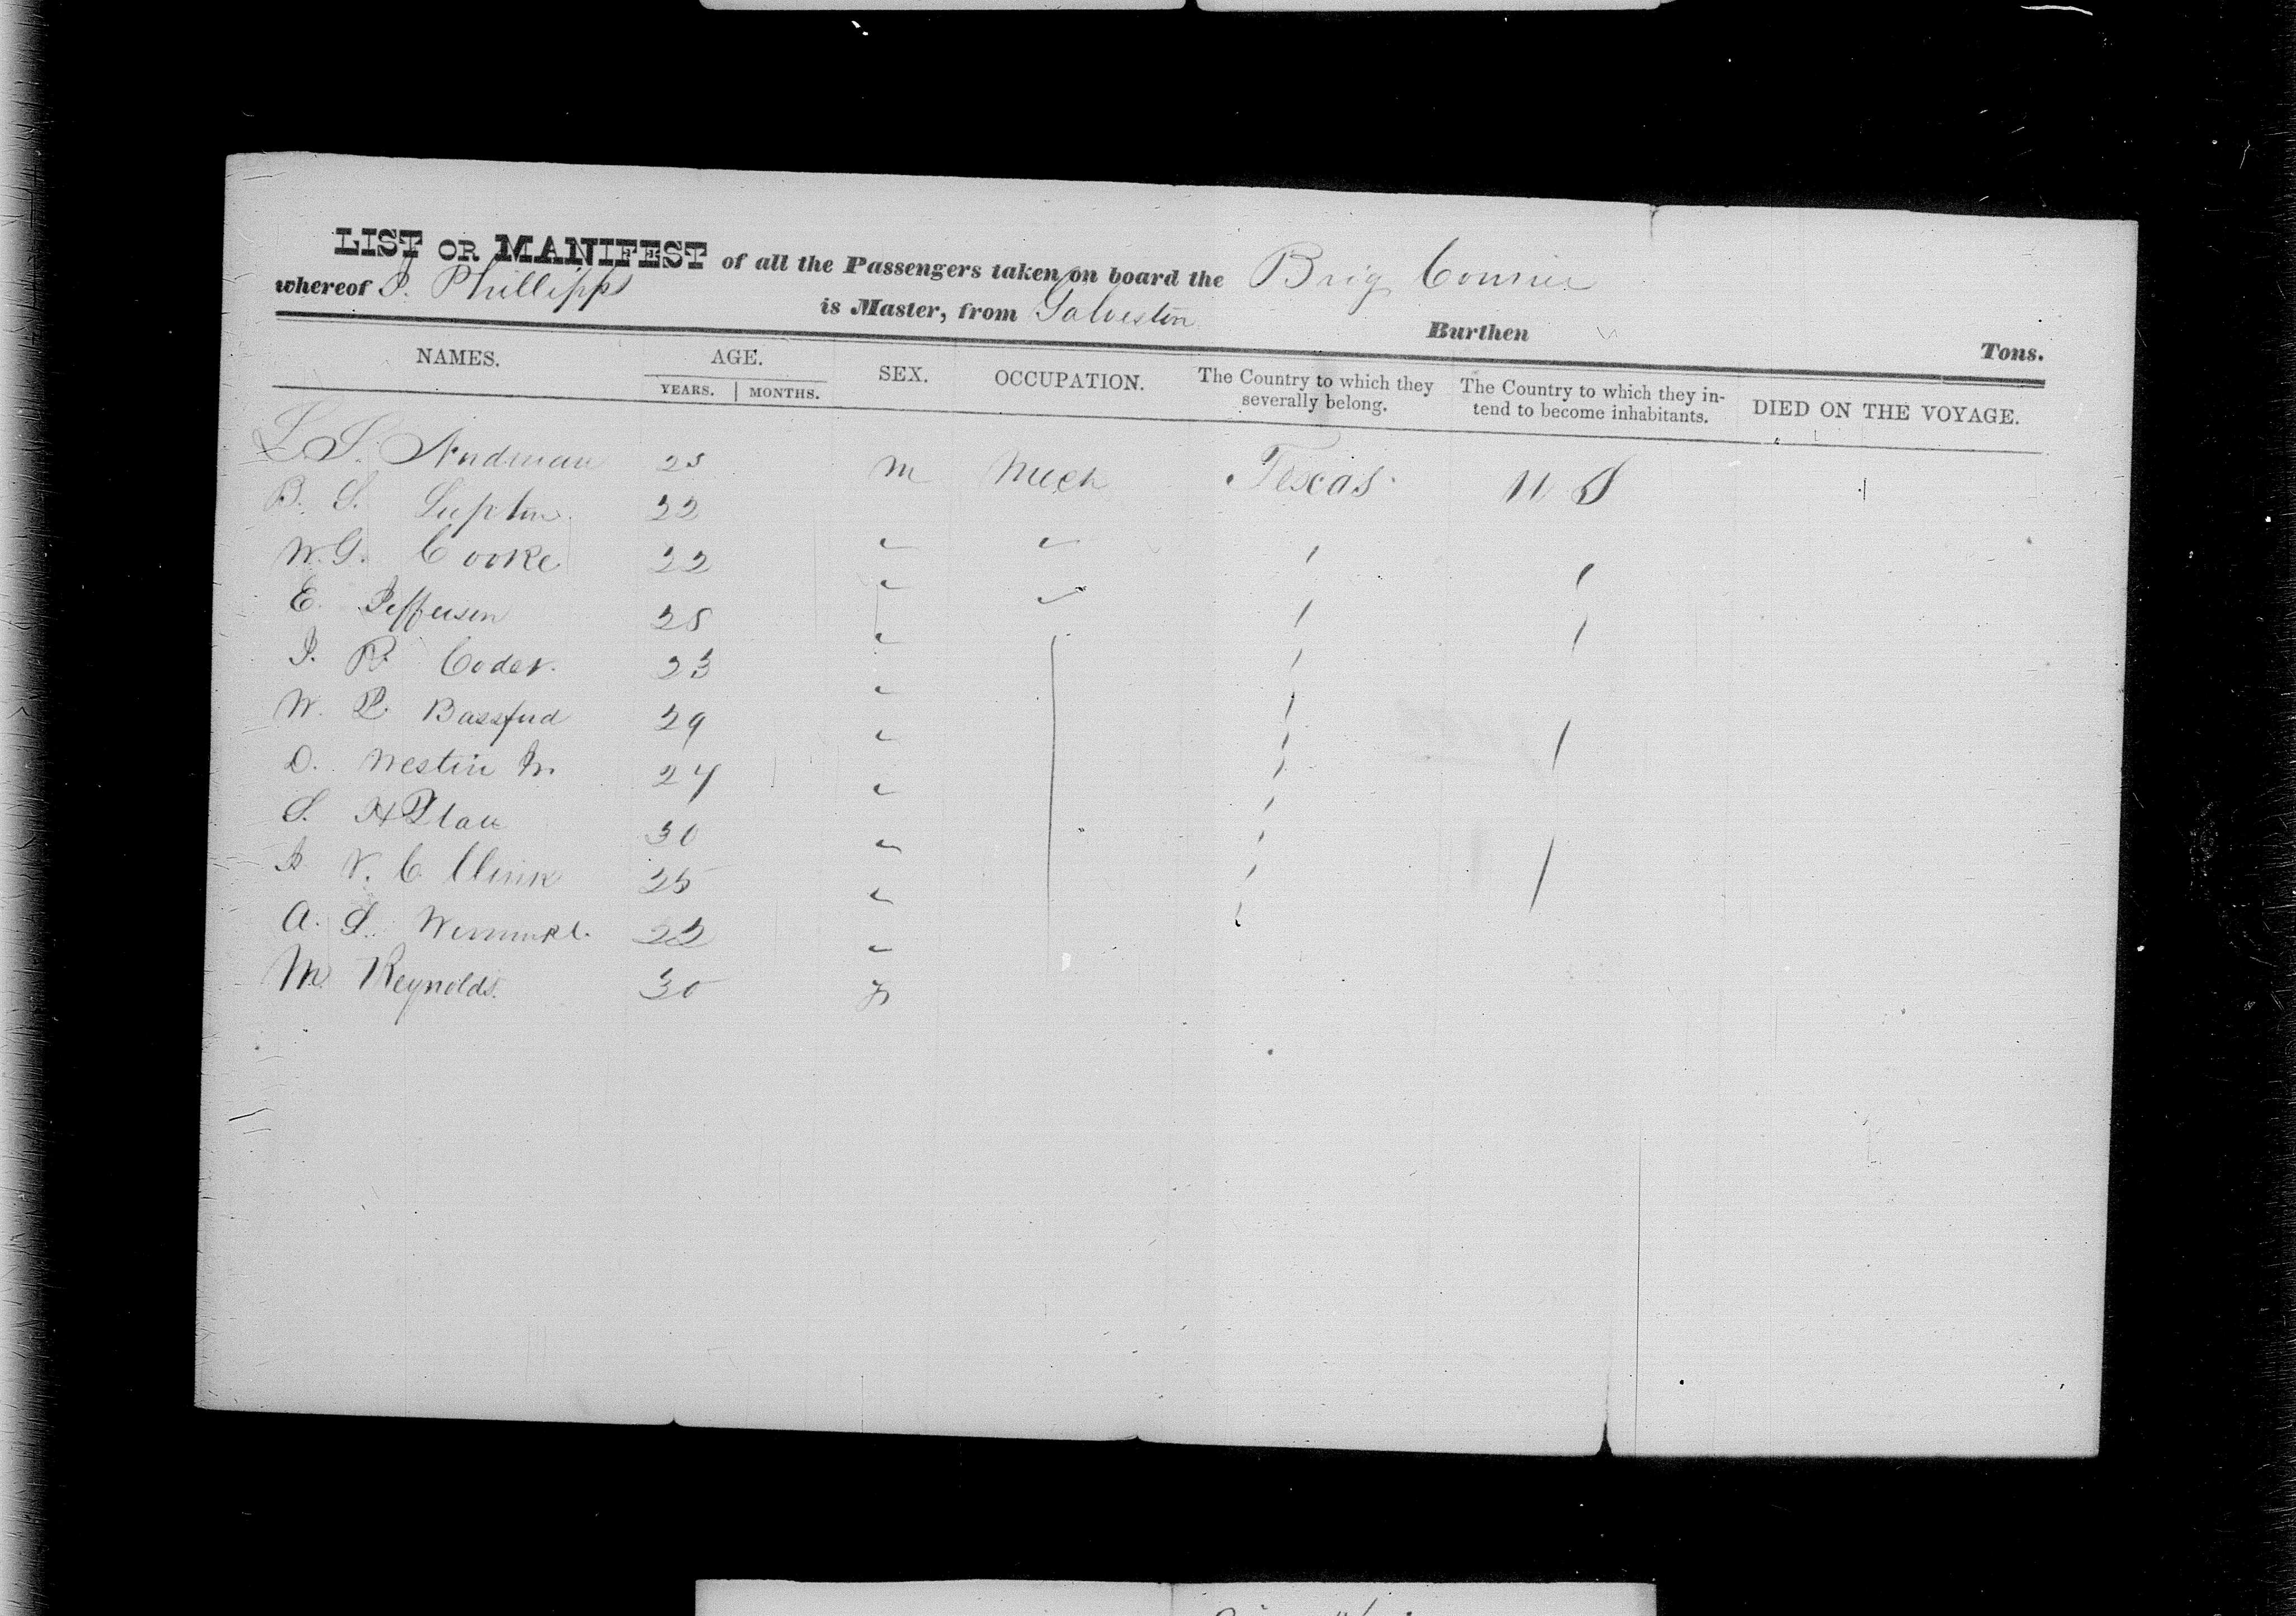 LIST OR MANIFEST of all the Passengers taken on board the Brig Courier
whereof J. Phillipps is Master, from Galveston Burthen Tons.
NAMES. AGE. YEARS. MONTHS. SEX. OCCUPATION. The Country to which they severally belong. The Country to which they intend to become inhabitants. DIED ON THE VOYAGE.
L. S. 25 m Mech Texas U S
B. S. Lupton 22
W. G. Cooke 22
E. Jefferson 25
J. R. Coder. 23
W. P. Bassford 29
D. Westin Jr. 24
S. H 30
V. C. 25
A. S. 22
M. Reynolds. 30 F